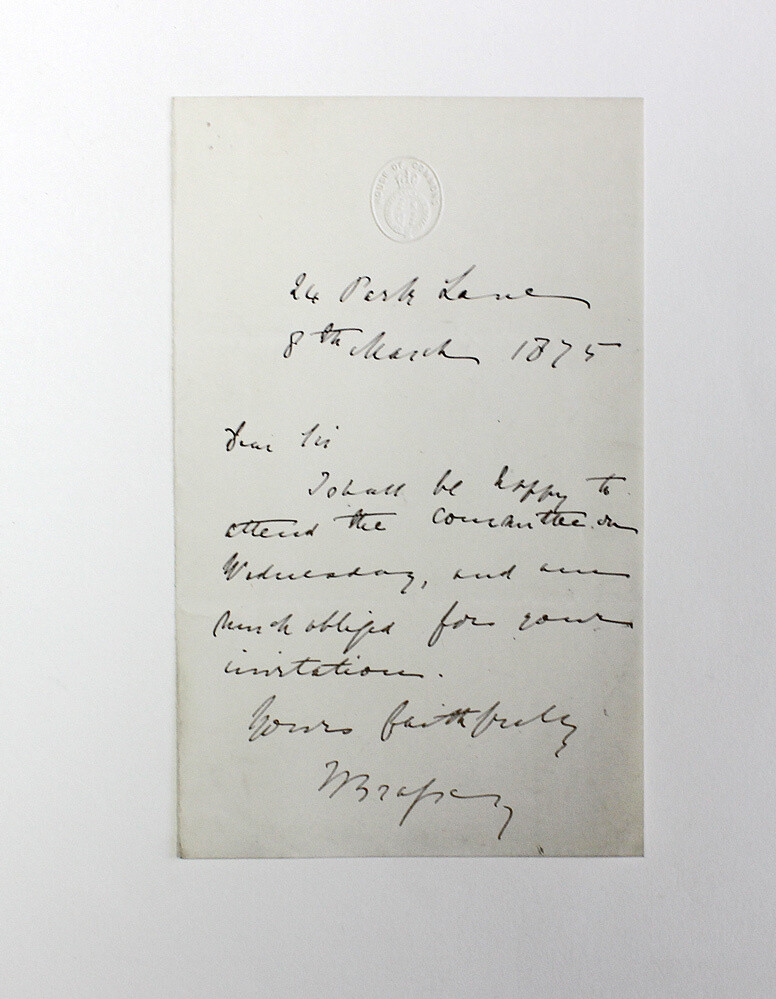 HOUSE OF COMMONS
24 Park Lane
8th March 1875
Dear Sir
I shall be happy to
attend the committee on
Wednesday, and am
much obliged for your
invitation.
Yours faithfully
TBrassey